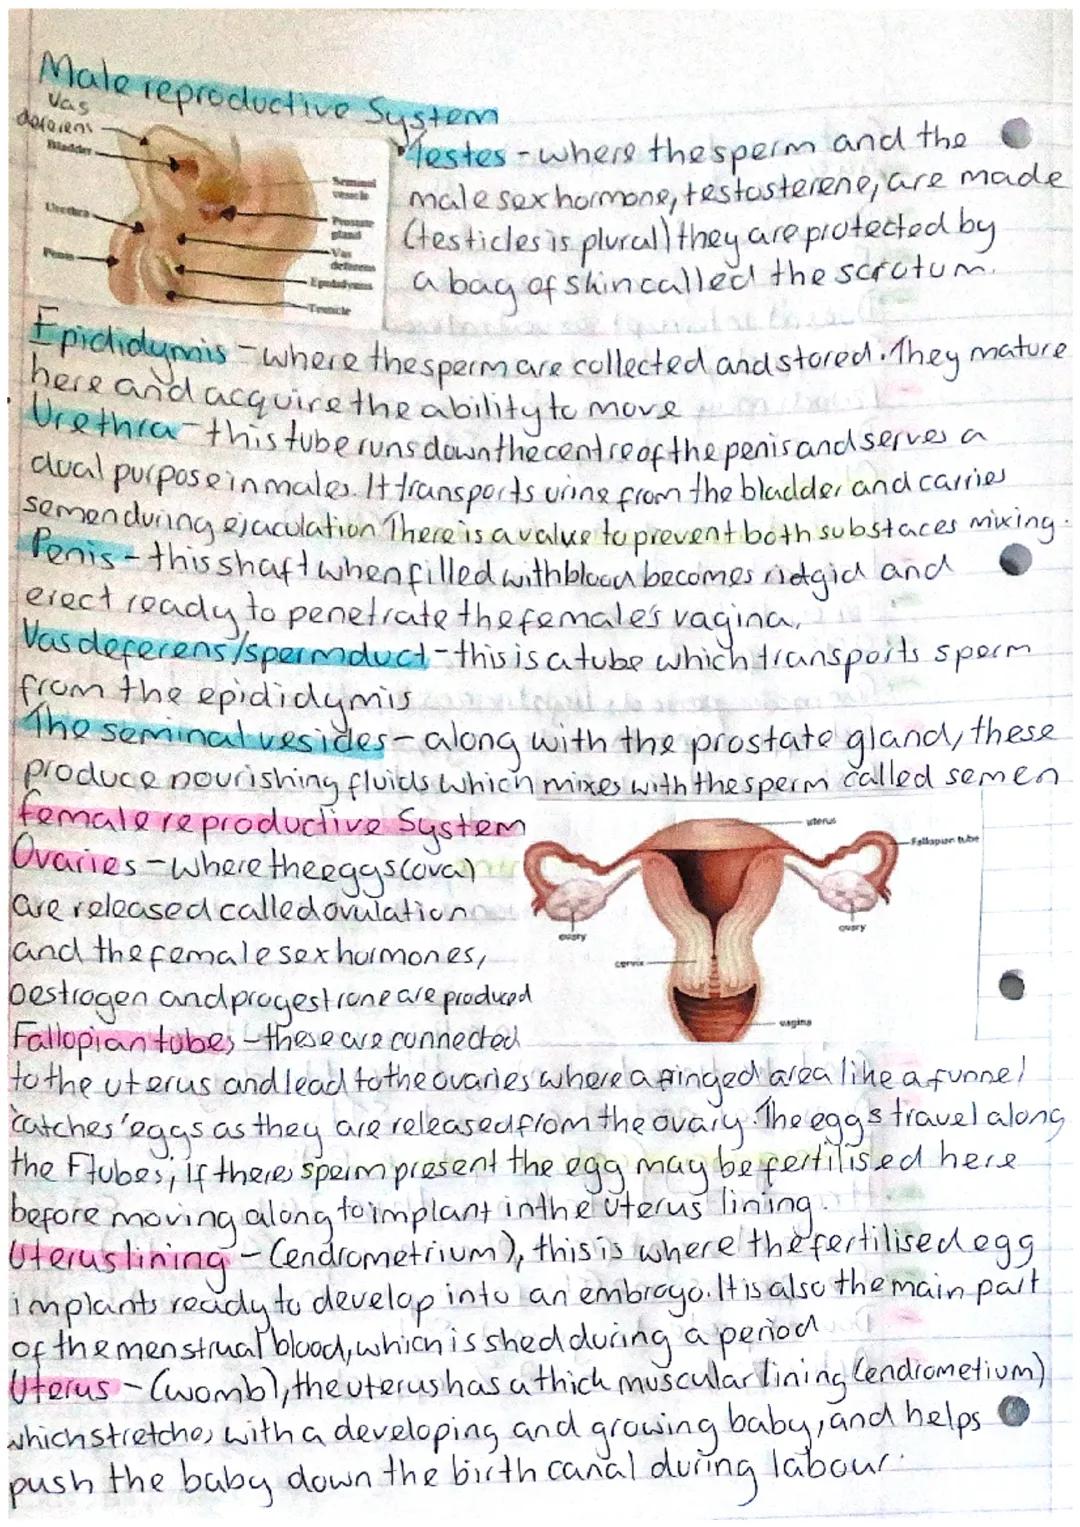 Male reproductive System
Vas
deferens
Bladder
Urethra
Penis
Seminal
vesicle
Prostate
gland
Vas
deferens
Epididymis
Testicle
Testes - where the sperm and the
male sex hormone, testosterene, are made
(testicles is plural) they are protected by
a bag of skin called the scrotum.
Epididymis - where the sperm are collected and stored. They mature
here and acquire the ability to move
Urethra - this tube runs down the centre of the penis and serves a
dual purpose in males. It transports urine from the bladder and carries
semen during ejaculation There is a value to prevent both substaces mixing.
Penis - this shaft when filled with blood becomes ridgid and
erect ready to penetrate the female's vagina.
Vas deferens/spermduct - this is a tube which transports sperm
from the epididymis
The seminal vesides - along with the prostate gland, these
produce nourishing fluids which mixes with the sperm called semen
female reproductive System
Ovaries - where the eggs (ova)
are released called ovulation
and the female sex hormones,
oestrogen and progestrone are produced
uterus
Fallopian tube
ovary
ovary
cervix
vagina
Fallopian tubes - these are connected
to the uterus and lead to the ovaries where a finged area like a funnel
'catches' eggs as they are released from the ovary. The eggs travel along
the F tubes, if theres sperm present the egg may be fertilised here
before moving along to implant in the uterus lining.
Uterus lining - (endrometrium), this is where the fertilised egg
implants ready to develop into an embroyo. It is also the main part
of the menstrual blood, which is shed during a period
Uterus - (womb), the uterus has a thick muscular lining (endrometium)
which stretches with a developing and growing baby, and helps
push the baby down the birth canal during labour.